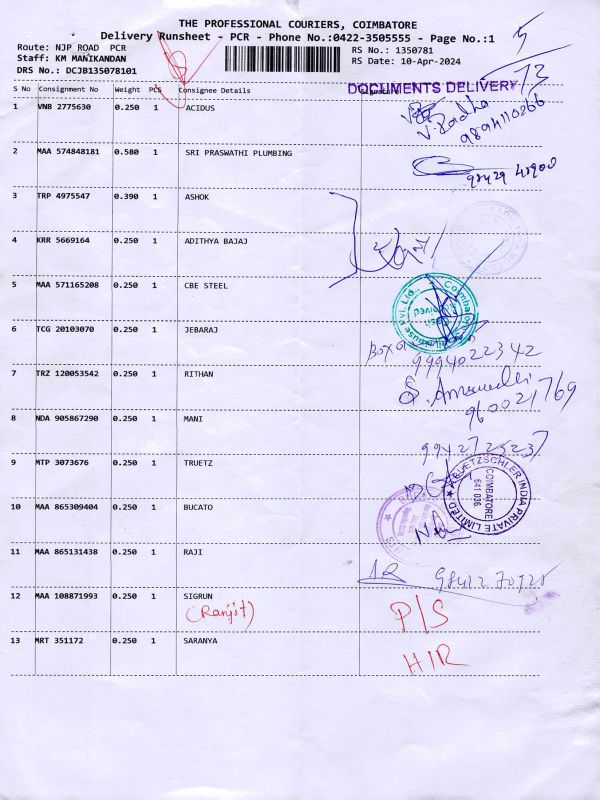 THE PROFESSIONAL COURIERS, COIMBATORE
Delivery Runsheet - PCR - Phone No.:0422-3505555 - Page No.:1
Route: NJP ROAD PCR
Staff: KM MANIKANDAN
DRS No.: DCJB135078101
RS No.: 1350781
RS Date: 10-Apr-2024
13
DOCUMENTS DELIVERY
S No Consignment No Weight PCS Consignee Details
1 VNB 2775630 0.250 1 ACIDUS
V. Radha
9894110266
2 MAA 574848181 0.580 1 SRI PRASWATHI PLUMBING
3 TRP 4975547 0.390 1 ASHOK
4 KRR 5669164 0.250 1 ADITHYA BAJAJ
5 MAA 571165208 0.250 1 CBE STEEL
6 TCG 20103070 0.250 1 JEBARAJ
9994022342
7 TRZ 120053542 0.250 1 RITHAN
960021769
8 NDA 905867290 0.250 1 MANI
9 MTP 3073676 0.250 1 TRUETZ
TRUETZSCHLER INDIA PRIVATE LIMITED
COIMBATORE
641 036.
10 MAA 865309404 0.250 1 BUCATO
11 MAA 865131438 0.250 1 RAJI
12 MAA 108871993 0.250 1 SIGRUN
(Ranjit)
P/S
13 MRT 351172 0.250 1 SARANYA
H/R